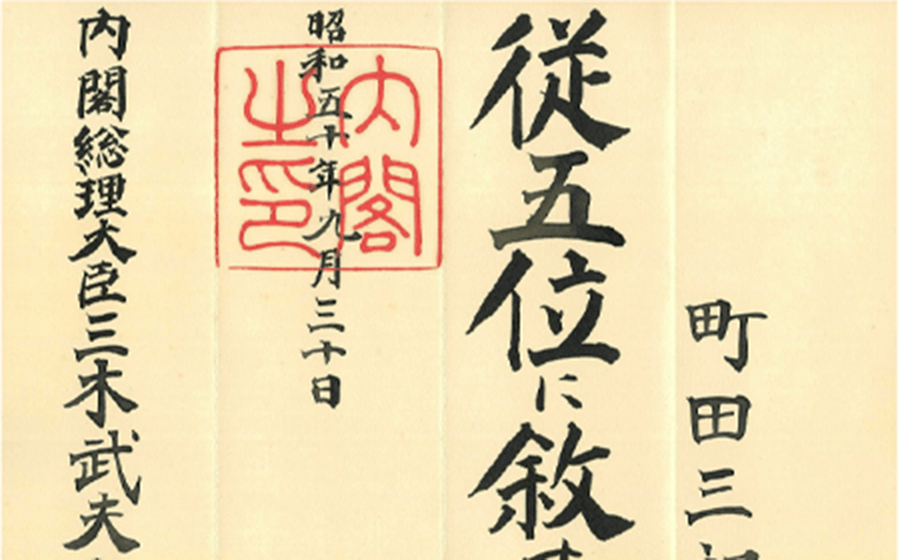 町田三
従五位に叙
昭和五十年九月三十日
内閣之印
内閣総理大臣三木武夫